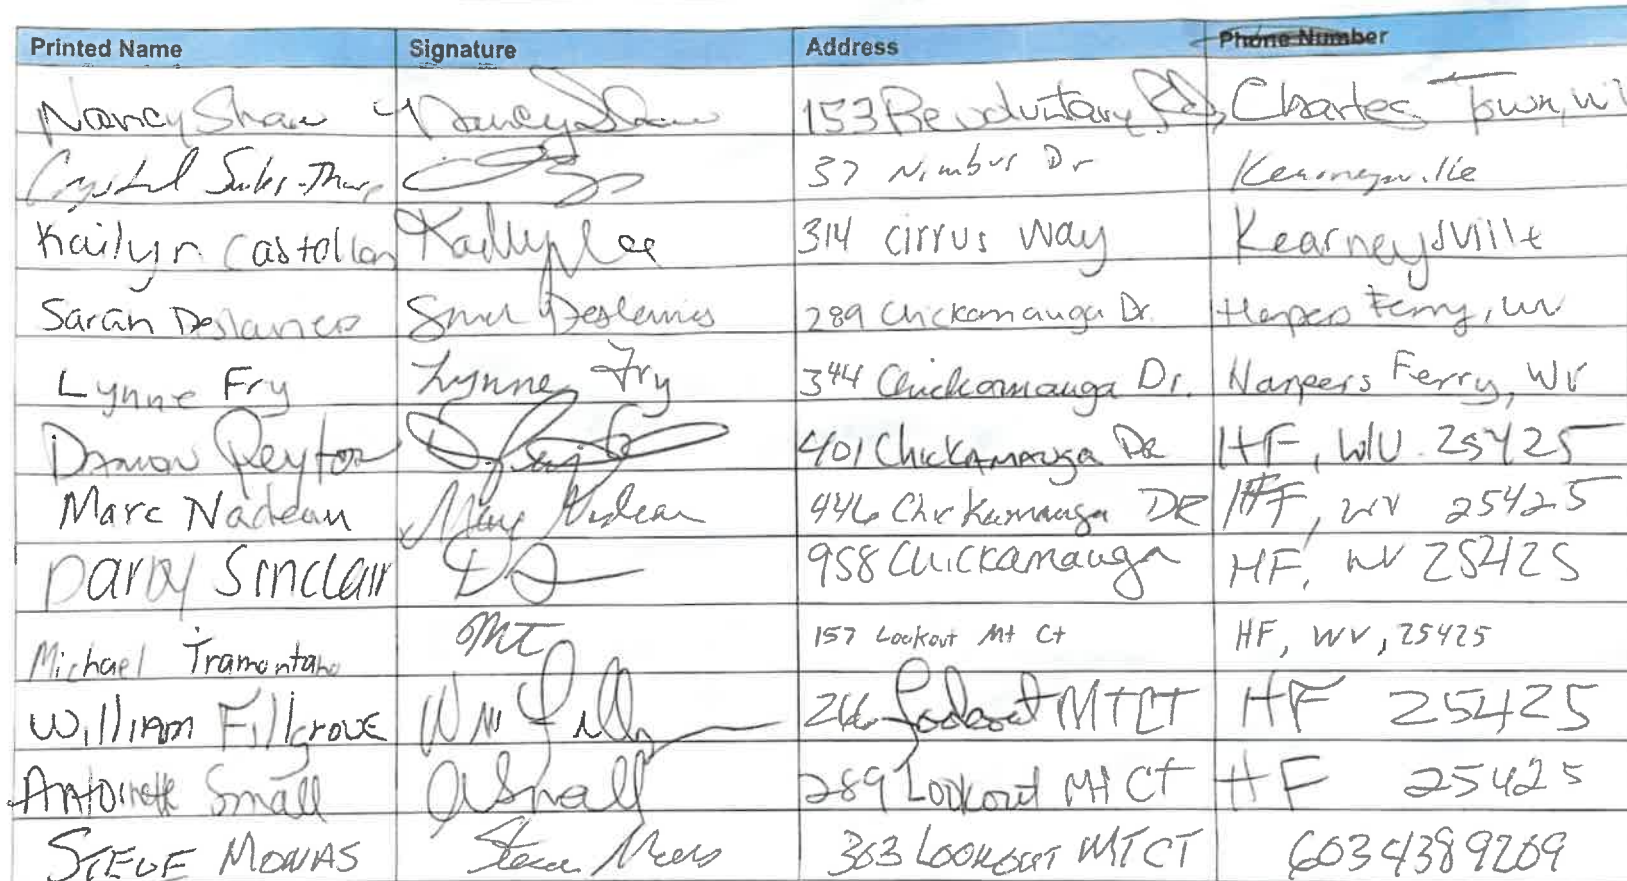 Printed Name Signature Address Phone Number
Nancy Shaw Nancy Shaw 153 Revoluntary Rd, Charles Town, W
Crystal 37 Nimbus Dr Kearneysville
Kailyn Castollan Kailyn 314 cirrus Way Kearneysville
Sarah Deslauriers 289 Chickamauga Dr. Harpers Ferry, WV
Lynne Fry Lynne Fry 344 Chickamauga Dr. Harpers Ferry, WV
Damon Peyton 401 Chickamauga DR HF, WV 25425
Marc Nadeau Marc Nadeau 446 Chickamauga DR HF, WV 25425
Darby Sinclair DS 958 Chickamauga HF, WV 25425
Michael Tramontano MT 157 Lookout Mt Ct HF, WV, 25425
William Fillgrove Wm 266 Lookout MT CT HF 25425
Antoinette Small A Small 289 Lookout Mt CT HF 25425
STEVE MONAS Steve 363 Lookout MT CT 6034389269